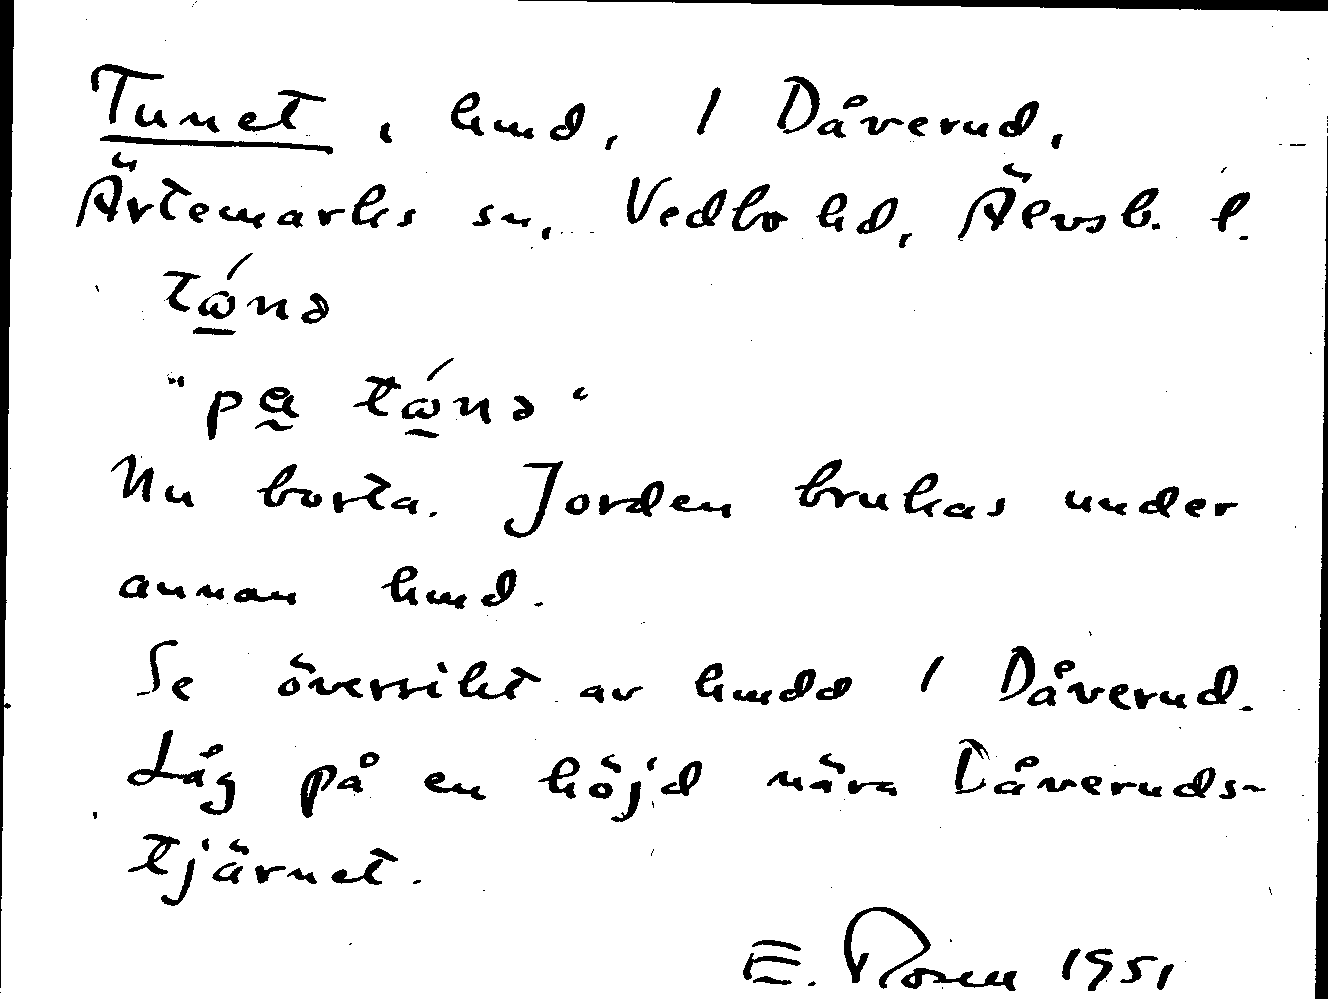 Tunet, hmd, 1 Dåverud,
Ärtemarks sn, Vedbo hd, Älvsb. l.
tώ̲nə
"pa̰ tώ̲nə"
Nu borta. Jorden brukas under
annan hmd.
Se översikt av hmdd 1 Dåverud.
Låg på en höjd nära Dåveruds-
tjärnet.
E. Rosen 1951